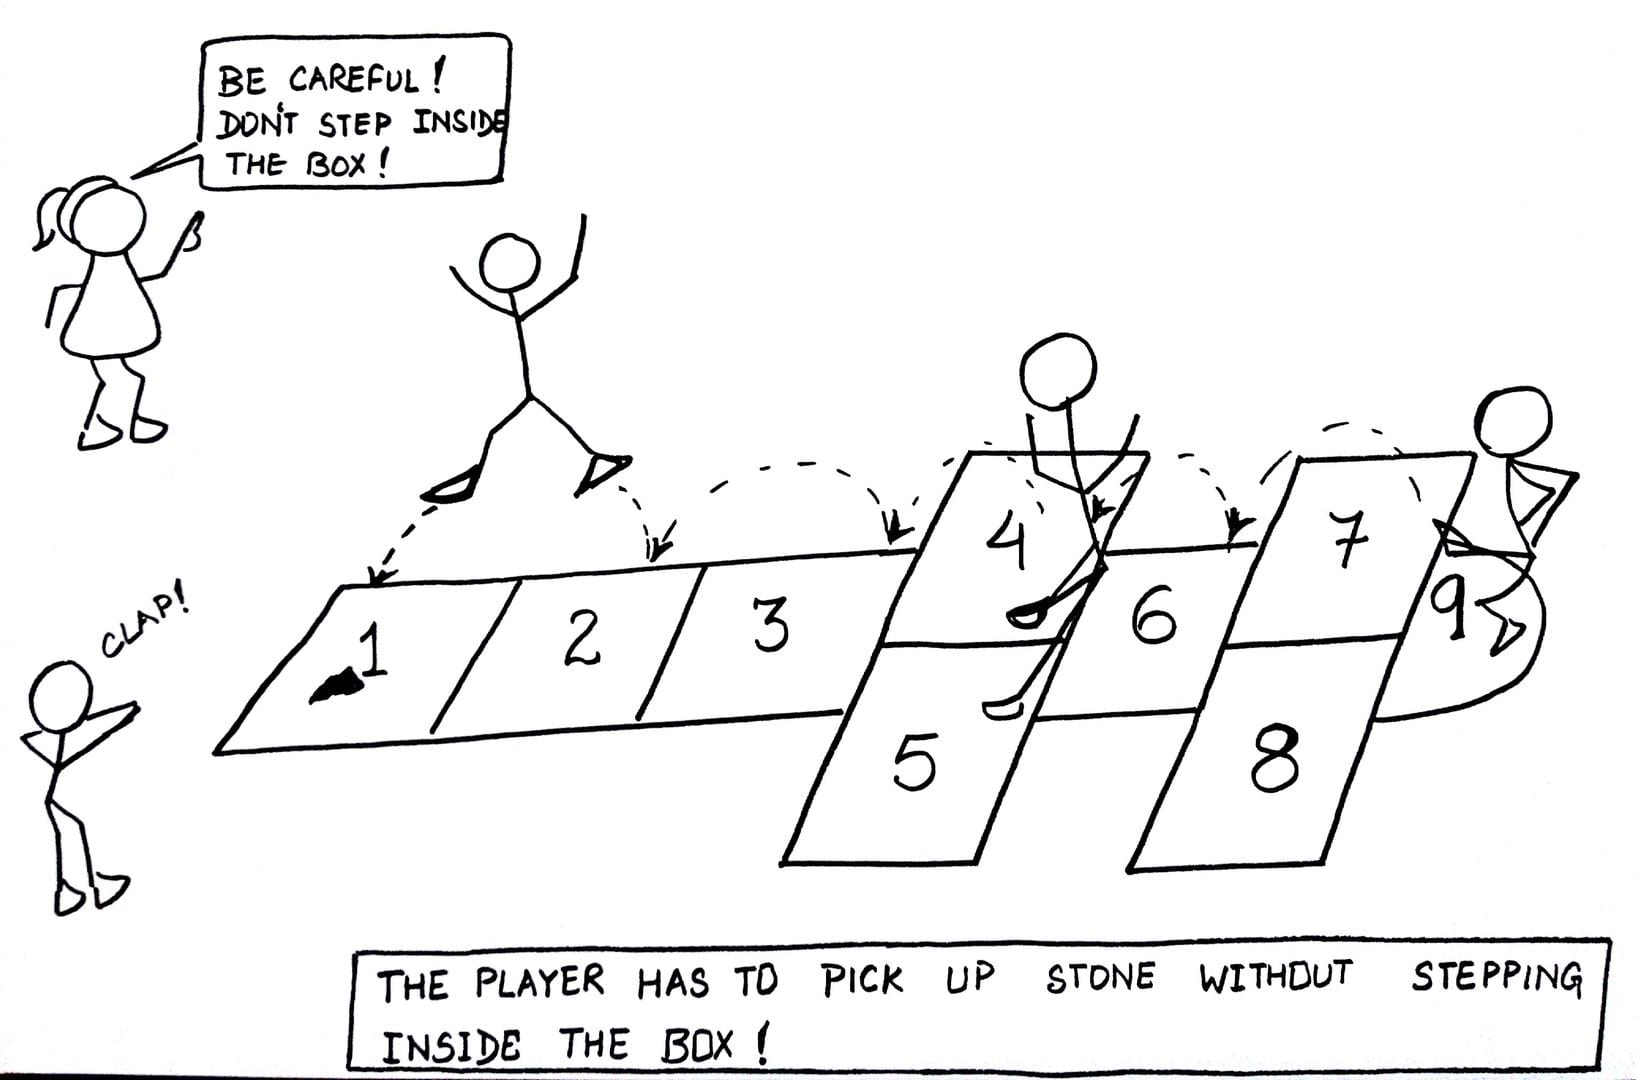 BE CAREFUL!
DON'T STEP INSIDE
THE BOX!
CLAP!
1
2
3
4
5
6
7
8
9
THE PLAYER HAS TO PICK UP STONE WITHOUT STEPPING
INSIDE THE BOX!